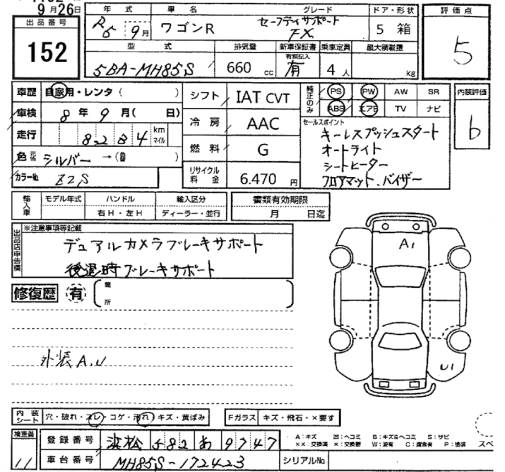 9月26日
出品番号 152
年式 R5年9月
車名 ワゴンR
グレード セーフティサポート FX
ドア・形状 5 箱
評価点 5
型式 5BA-MH85S
排気量 660 cc
新車保証書 有 有無記入
乗車定員 4人
最大積載量 kg
車歴 自家用・レンタ( )
車検 8年9月( 日)
走行 82,840 km マイル
色 シルバー →( )
カラーNo. Z2S
シフト IAT CVT
冷房 AAC
燃料 G
リサイクル料金 6.470円
純正のみ PS PW AW SR
ABS エアB TV ナビ
内装評価 b
セールスポイント
キーレスプッシュスタート
オートライト
シートヒーター
フロアマット、バイザー
輸入車 モデル年式 年 ハンドル 右H・左H 輸入区分 ディーラー・並行
書類有効期限 月 日迄
出品店申告欄 ※注意事項等記載
デュアルカメラブレーキサポート
後退時ブレーキサポート
修復歴 有 箇所
外装A.U
A1
U1
内装シート 穴・破れ・スレ・コゲ・汚れ・キズ・黄ばみ
Fガラス キズ・飛石・×要す
検査員 11
登録番号 浜松 582 あ 9747
車台番号 MH85S-172423
シリアルNo.
A:キズ